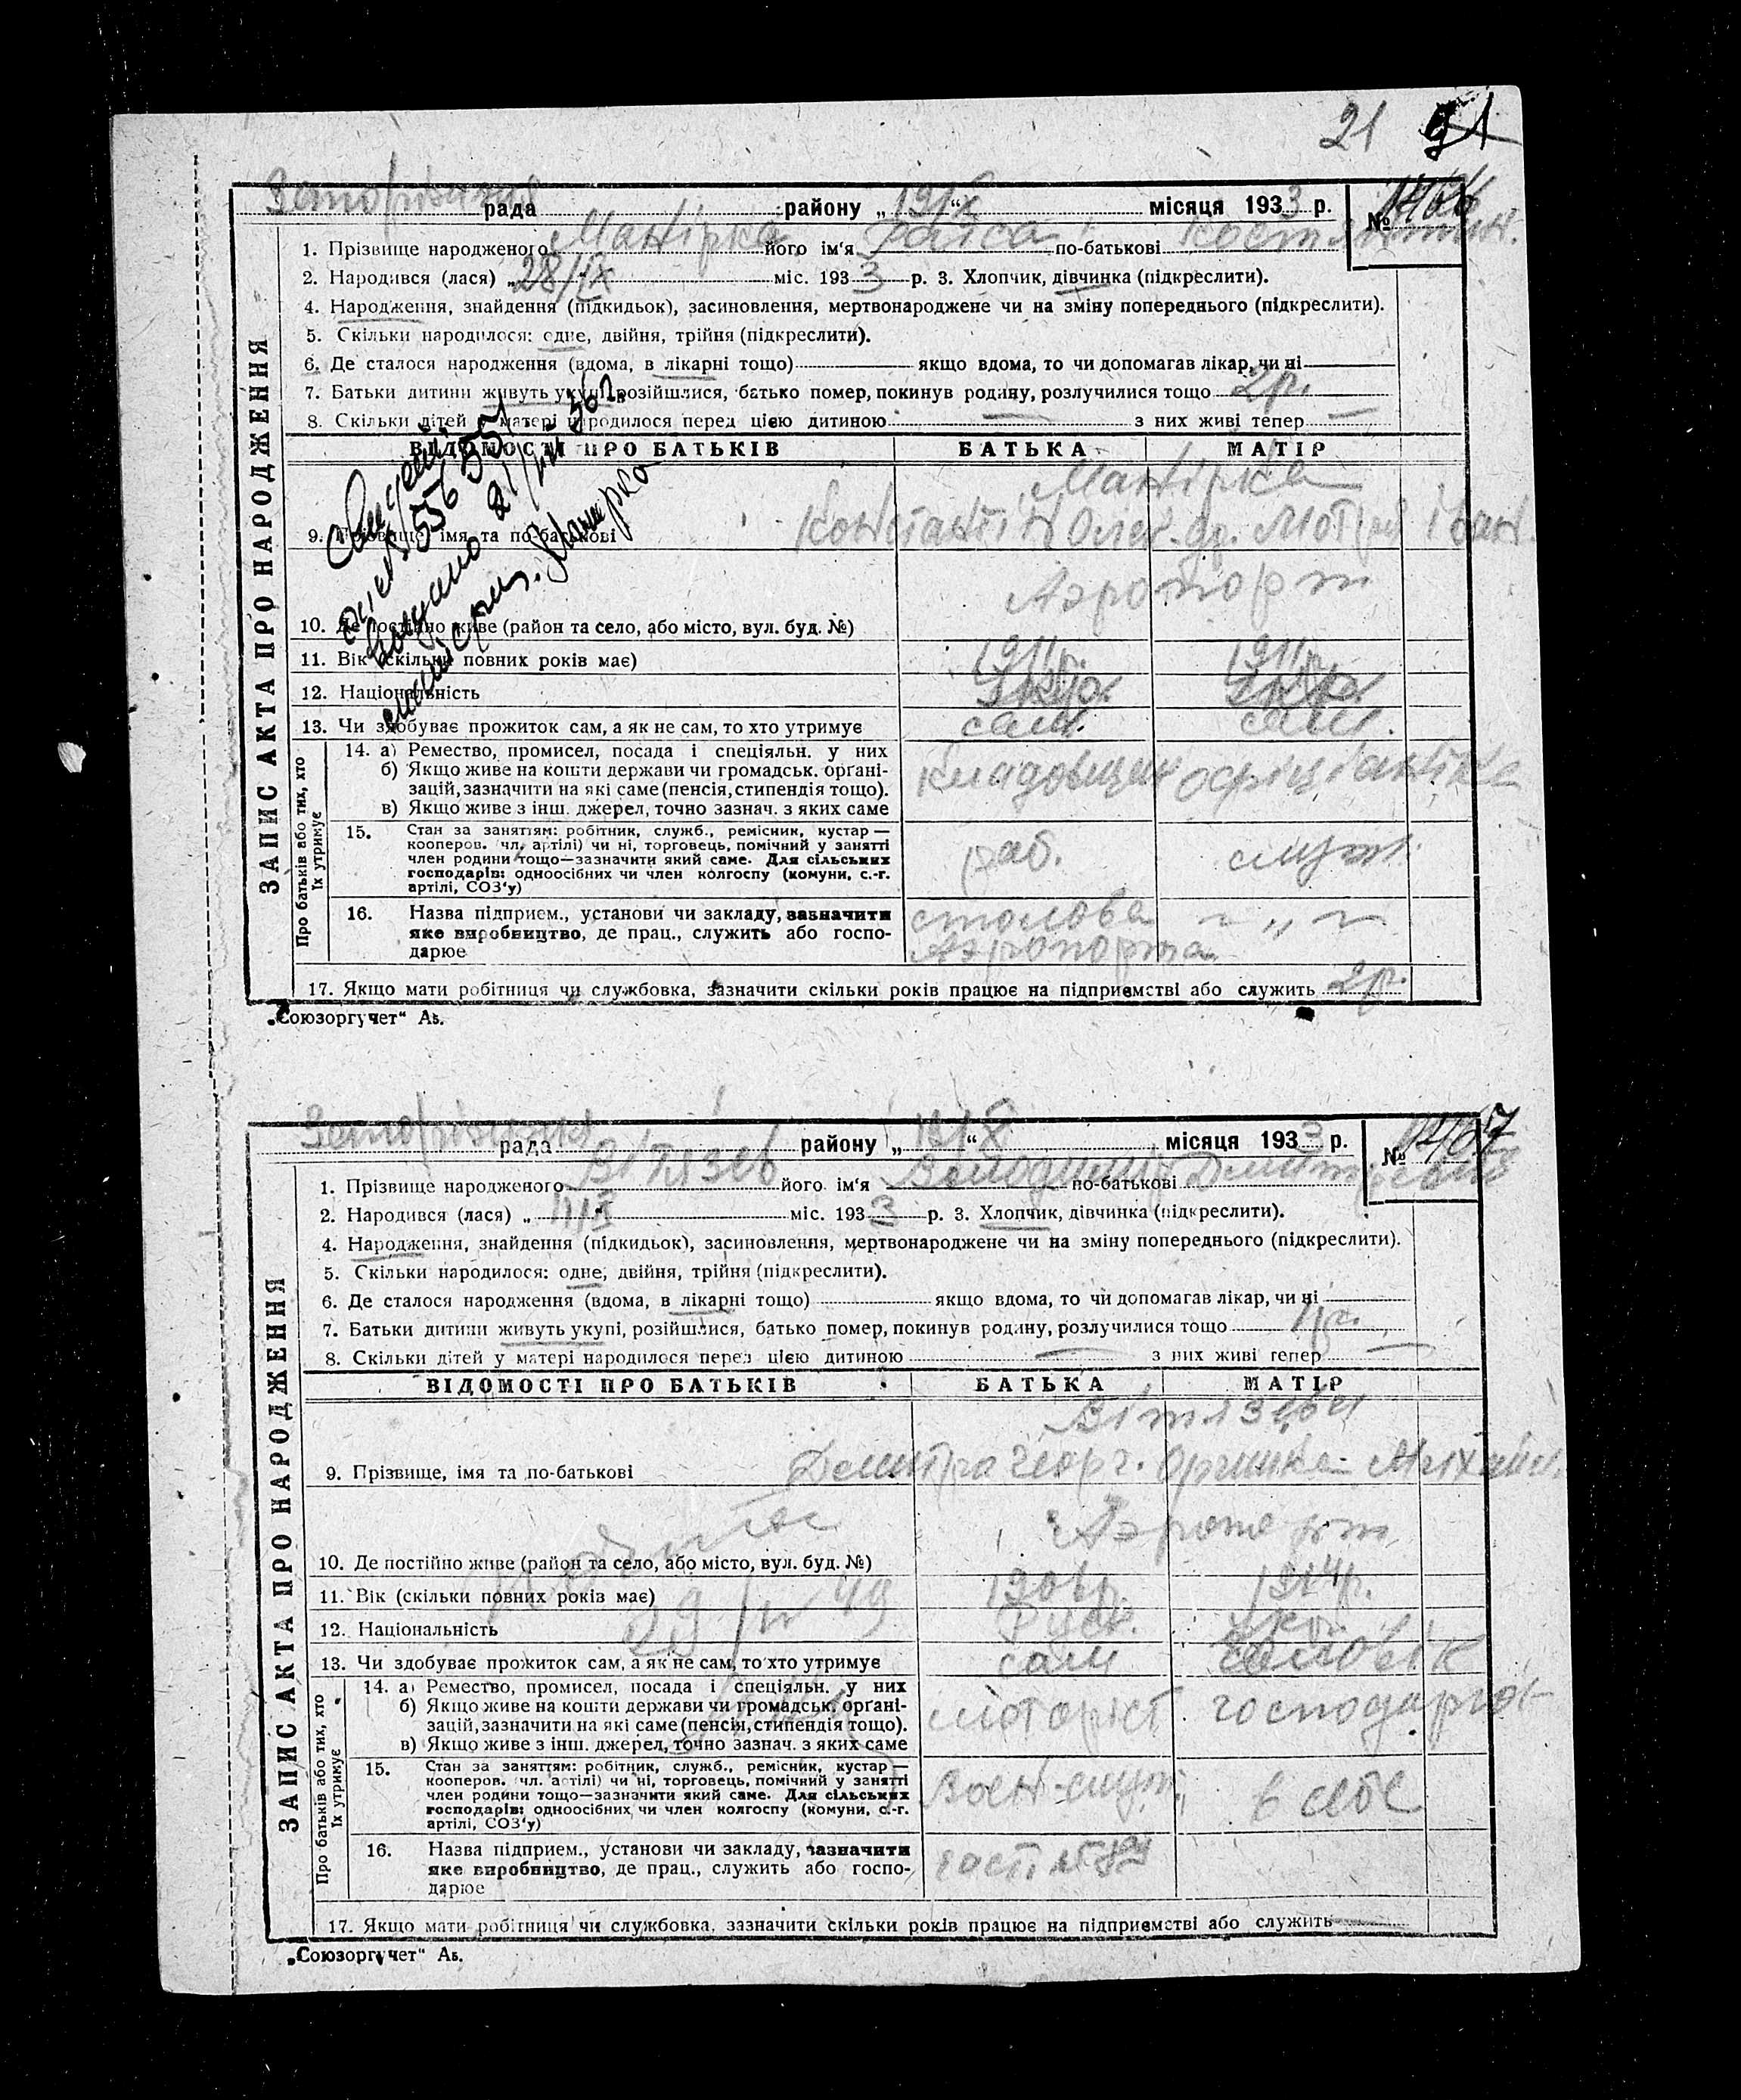 21 91
рада району „19/X“ місяця 1933 р. №
1. Прізвище народженого Манірка його ім‘я Раіса по-батькові Костянтин.
2. Народився (лася) „28/IX міс. 1933 р. 3. Хлопчик, дівчинка (підкреслити).
4. Народження, знайдення (підкидьок), засиновлення, мертвонароджене чи на зміну попереднього (підкреслити).
5. Скільки народилося: одне, двійня, трійня (підкреслити).
6. Де сталося народження (вдома, в лікарні тощо) якщо вдома, то чи допомагав лікар, чи ні
7. Батьки дитини живуть укупі, розійшлися, батько помер, покинув родину, розлучилися тощо 2р.
8. Скільки дітей у матері народилося перед цією дитиною — з них живі тепер —
ЗАПИС АКТА ПРО НАРОДЖЕННЯ
ВІДОМОСТІ ПРО БАТЬКІВ БАТЬКА МАТІР
Манірка
9. Прізвище, імя та по-батькові Константін Олек-др. Мотря Іван.
Аэропорт
10. Де постійно живе (район та село, або місто, вул. буд. №)
11. Вік (скільки повних років має) 1911р. 1911р.
12. Національність Укр. Укр.
13. Чи здобуває прожиток сам, а як не сам, то хто утримує сам. сам.
Про батьків або тих, хто їх утримує
14. а) Ремество, промисел, посада і спеціяльн. у них
б) Якщо живе на кошти держави чи громадськ. орґані-
зацій, зазначити на які саме (пенсія, стипендія тощо). кладовщик офіціантка
в) Якщо живе з інш. джерел, точно зазнач. з яких саме
15. Стан за заняттям: робітник, служб., ремісник, кустар —
кооперов. чл. артілі) чи ні, торговець, помічний у занятті
член родини тощо—зазначити який саме. Для сільських раб. служ.
господарів: одноосібних чи член колгоспу (комуни, с.-г.
артілі, СОЗ‘у)
16. Назва підприєм., установи чи закладу, зазначити столова — „ —
яке виробництво, де прац., служить або госпо- Аэропорта
дарює
17. Якщо мати робітниця чи службовка, зазначити скільки років працює на підприємстві або служить 2р.
„Союзоргучет“ Аь.
выдано 21/VII 56 г.
рада району „19/X“ місяця 1933 р. №
1. Прізвище народженого Вітязев його ім‘я Володимир по-батькові
2. Народився (лася) „ міс. 1933 р. 3. Хлопчик, дівчинка (підкреслити).
4. Народження, знайдення (підкидьок), засиновлення, мертвонароджене чи на зміну попереднього (підкреслити).
5. Скільки народилося: одне, двійня, трійня (підкреслити).
6. Де сталося народження (вдома, в лікарні тощо) якщо вдома, то чи допомагав лікар, чи ні
7. Батьки дитини живуть укупі, розійшлися, батько помер, покинув родину, розлучилися тощо 1р.
8. Скільки дітей у матері народилося перед цією дитиною — з них живі тепер —
ЗАПИС АКТА ПРО НАРОДЖЕННЯ
ВІДОМОСТІ ПРО БАТЬКІВ БАТЬКА МАТІР
9. Прізвище, імя та по-батькові Дмитра Георг. Михайл.
Аэропорт
10. Де постійно живе (район та село, або місто, вул. буд. №)
11. Вік (скільки повних років має) 1914р.
12. Національність Руск. Укр.
13. Чи здобуває прожиток сам, а як не сам, то хто утримує сам чоловік
Про батьків або тих, хто їх утримує
14. а) Ремество, промисел, посада і спеціяльн. у них
б) Якщо живе на кошти держави чи громадськ. орґані-
зацій, зазначити на які саме (пенсія, стипендія тощо). моторіст
в) Якщо живе з інш. джерел, точно зазнач. з яких саме
15. Стан за заняттям: робітник, служб., ремісник, кустар —
кооперов. чл. артілі) чи ні, торговець, помічний у занятті
член родини тощо—зазначити який саме. Для сільських Воен-служ.
господарів: одноосібних чи член колгоспу (комуни, с.-г.
артілі, СОЗ‘у)
16. Назва підприєм., установи чи закладу, зазначити
яке виробництво, де прац., служить або госпо-
дарює
17. Якщо мати робітниця чи службовка, зазначити скільки років працює на підприємстві або служить
„Союзоргучет“ Аь.